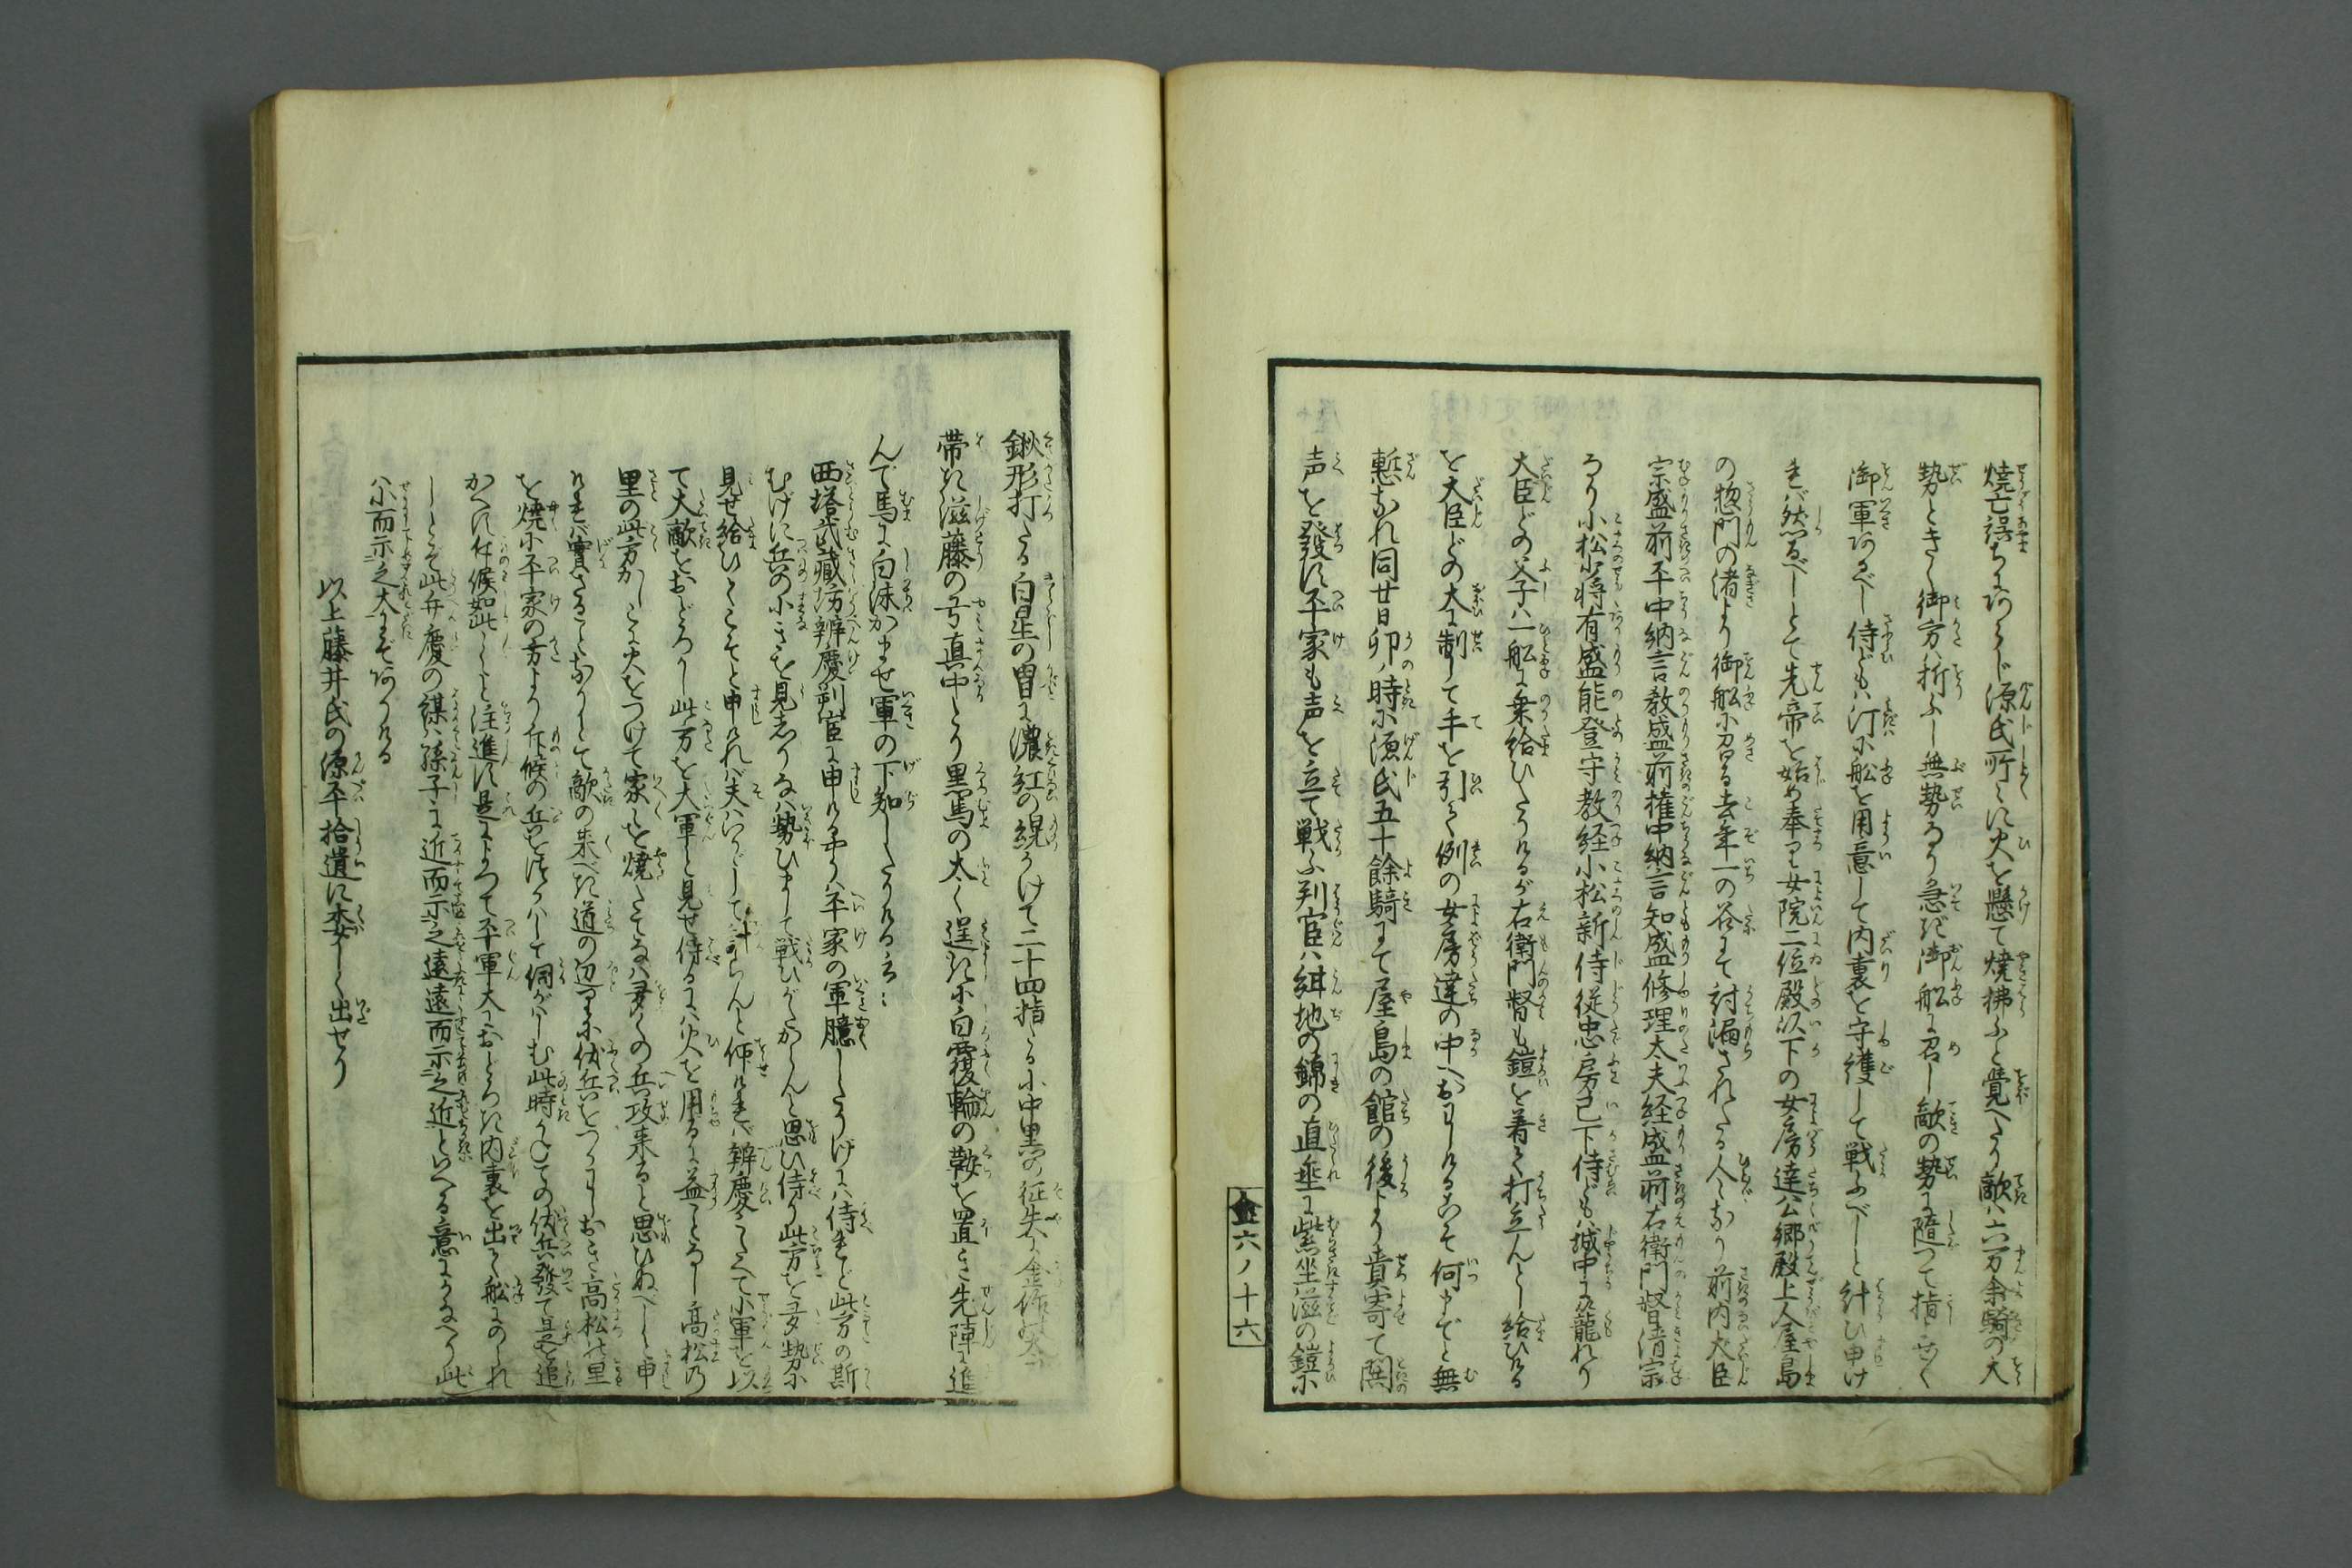 焼亡誤ちにあらじ源氏所々に火を懸て焼拂ふと覺へたり敵は六万余騎の大
勢ときく御方は折ふし無勢なり急ぎ御船に召し敵の勢に随つて指
御軍あるべし侍どもは汀に船を用意して内裏を守護して戦ふべしと計ひ申け
れば然るべしとて先帝を始め奉り女院二位殿以下の女房達公卿殿上人屋島
の惣門の渚より御船に召る去年一の谷にて討漏されたる人々なり前内大臣
宗盛前平中納言教盛前権中納言知盛修理大夫経盛前右衛門督清宗
なり小松少将有盛能登守教経小松新侍従忠房已下侍どもは城中に籠れり
大臣どの父子は一船に乗給ひたりけるが右衛門督も鎧を着て打立んとし給ひける
を大臣どの大に制して手を引て例の女房達の中へおはしけるこそ何までと無
慙なれ同廿日卯ノ時に源氏五十餘騎にて屋島の館の後より責寄て鬨
声を發す平家も声を立て戦ふ判官は紺地の錦の直垂に紫坐滋の鎧に
六ノ十六
鍬形打たる白星の冑に濃紅の縨かけて二十四指たる小中黒の征矢に金作
帯き滋藤の弓真中とり黒馬の太く逞きに白覆輪の鞍を置き先陣に進
んで馬に白沫かませ軍の下知したりける云々
西塔武藏坊辨慶判官に申けるやうは平家の軍臆したりげには侍れど此方の斯
むげに兵の小さきを見志りなば勢ひまして戦ひがたからんと思ひ侍り此方を多勢に
見せ給ひてこそと申ければ夫はいかゞして計らんと仰ければ辨慶こたへて小軍を以
て大敵をおどろかし此方を大軍と見せ侍るには火を用るに益ことなし高松乃
里の此方かしこに火をつけて家々を焼たてなば多くの兵攻来ると思ひぬべしと申
ければ實さることなりとて敵の来べき道の辺りに伏兵をつかはしおき高松の里
を焼に平家の方より斥候の兵をつかはして伺がはしむ此時かねての伏兵發て是を追
かへす斥候如此々々と注進す是によつて平軍大におどろき内裏を出て船にのられ
しとぞ此弁慶の謀は孫子に近而示之遠遠而示之近といへる意にかなへり此
小而示之大にぞありける
以上藤井氏の源平拾遺に委しく出せり